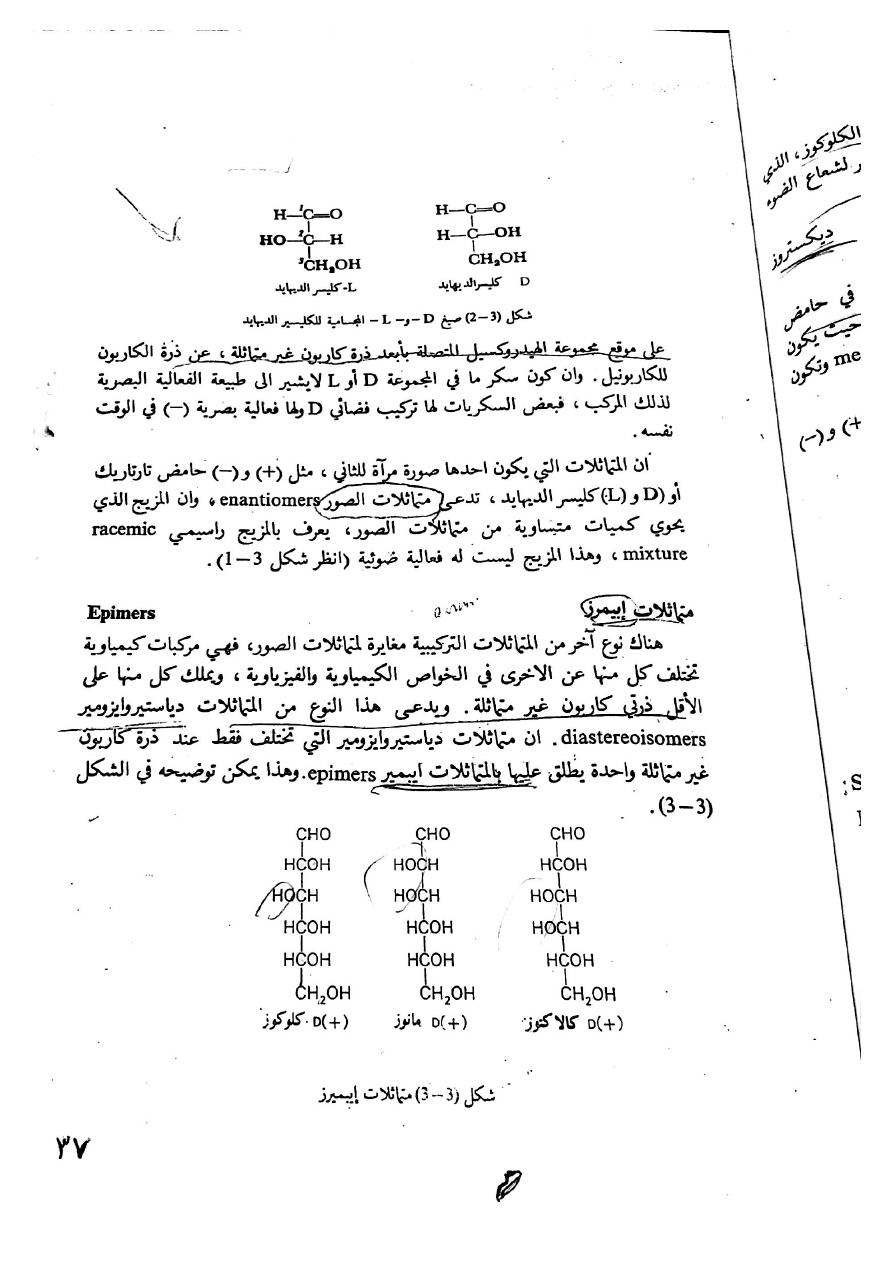 H—¹C=O
HO—²C—H
³CH₂OH
L- كليسر الديهايد
H—C=O
H—C—OH
CH₂OH
D كليسرالديهايد
شكل (3–2) صيغ D –و– L – المجسامية للكليسير الديهايد
على موقع مجموعة الهيدروكسيل المتصلة بأبعد ذرة كاربون غير متماثلة ، عن ذرة الكاربون
للكاربونيل . وان كون سكر ما في المجموعة D أو L لايشير الى طبيعة الفعالية البصرية
لذلك المركب ، فبعض السكريات لها تركيب فضائي D ولها فعالية بصرية (–) في الوقت
نفسه .
ان المتماثلات التي يكون احدها صورة مرآة للثاني ، مثل (+) و(–) حامض تارتاريك
أو (D و (L:) كليسر الديهايد ، تدعى متماثلات الصور enantiomers ، وان المزيج الذي
يحوي كميات متساوية من متماثلات الصور ، يعرف بالمزيج راسيمي racemic
mixture ، وهذا المزيج ليست له فعالية ضوئية (انظر شكل 3–1) .
متماثلات إيبمرز Epimers
هناك نوع آخر من المتماثلات التركيبية مغايرة لمتماثلات الصور، فهي مركبات كيمياوية
تختلف كل منها عن الاخرى في الخواص الكيمياوية والفيزياوية ، ويملك كل منها على
الأقل ذرتي كاربون غير متماثلة . ويدعى هذا النوع من المتماثلات دياستيروايزومير
diastereoisomers . ان متماثلات دياستيروايزومير التي تختلف فقط عند ذرة كاربون
غير متماثلة واحدة يطلق عليها بالمتماثلات ايبمير epimers . وهذا يمكن توضيحه في الشكل
(3–3) .
CHO
HCOH
HOCH
HCOH
HCOH
CH₂OH
D(+) كلوكوز
CHO
HOCH
HOCH
HCOH
HCOH
CH₂OH
D(+) مانوز
CHO
HCOH
HOCH
HOCH
HCOH
CH₂OH
D(+) كالاكتوز
شكل (3–3) متماثلات إيبميرز
٣٧
الكلوكوز ، الذي
ر لشعاع الضوء
ديكستروز
في حامض
حيث يكون
me وتكون
+) و(–)
S: